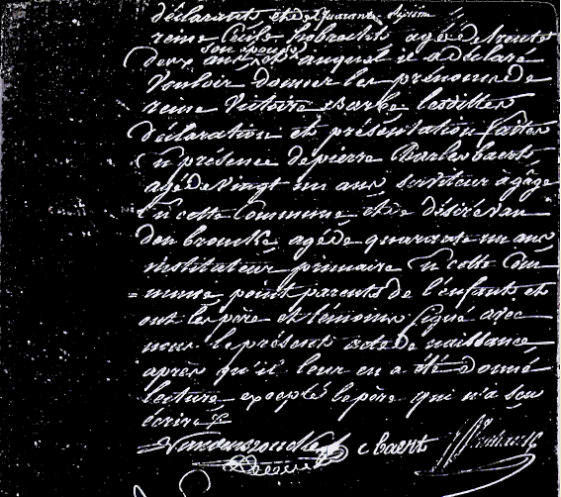 déclarant et de
reine Cécile agé de trente
son épouse
deux ans et auquel il a déclaré
vouloir donner les prénoms de
reine Victoire Barbe lesdittes
déclaration et présentation faittes
en présence de pierre Charles baert
agé de vingt un ans serviteur à gage
en cette Commune et de désiré van
den broucke agé de quarante un ans
instituteur primaire en cette Com-
=mune point parents de l'enfants et
ont les père et témoins signé avec
nous le présent acte de naissance
après qu'il leur en a été donné
lecture excepté le père qui n'a sçu
écrire
c baert